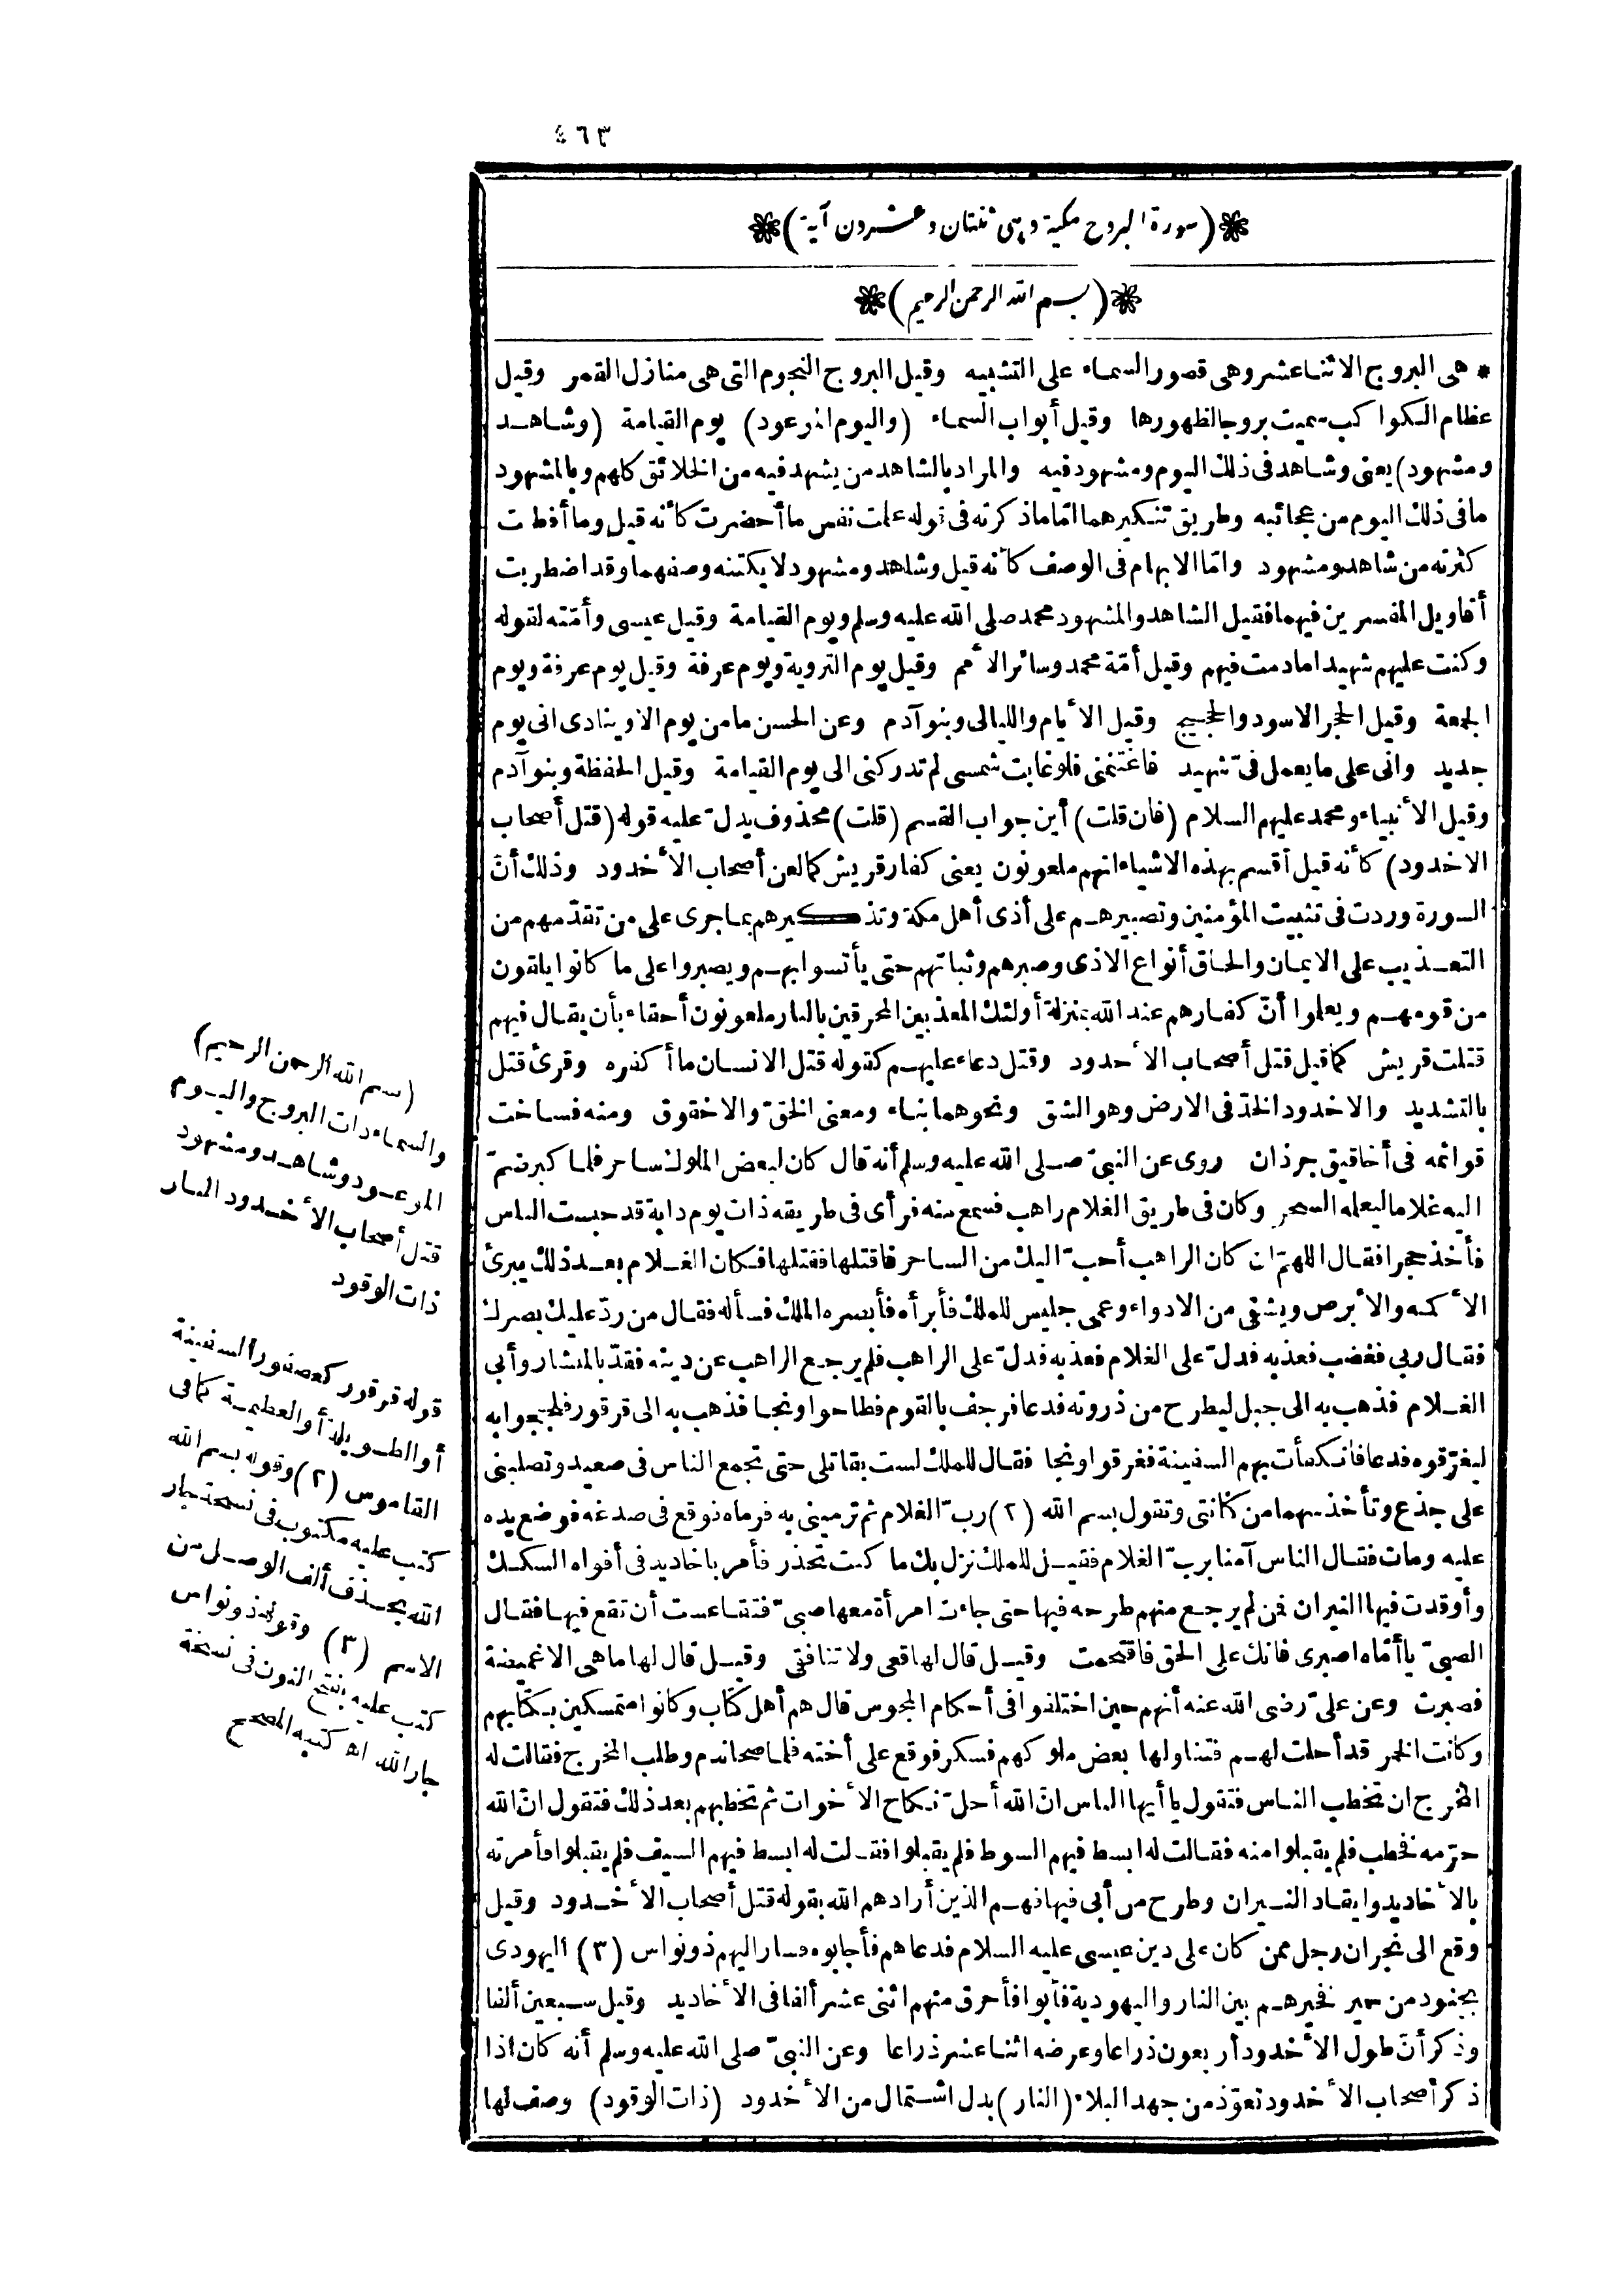 ٤٦٣
❋(سورة البروج مكية وهى ثنتان وعشرون آية)❋
❋(بسم الله الرحمن الرحيم)❋
* هى البروج الاثناعشر وهى قصور السماء على التشبيه وقيل البروج النجوم التى هى منازل القمر وقيل
عظام الكواكب سميت بروجا لظهورها وقيل أبواب السماء (واليوم الموعود) يوم القيامة (وشاهد
ومشهود) يعنى وشاهد فى ذلك اليوم ومشهود فيه والمراد بالشاهد من يشهد فيه من الخلائق كلهم وبالمشهود
مافى ذلك اليوم من عجائبه وطريق تنكيرهما امّا ماذكرته فى قوله علمت نفس ما أحضرت كأنه قيل وما أفرطت
كثرته من شاهد ومشهود وامّا الابهام فى الوصف كأنه قيل وشاهد ومشهود لا يكتنه وصفهما وقد اضطربت
أقاويل المفسرين فيهما فقيل الشاهد والمشهود محمد صلى الله عليه وسلم ويوم القيامة وقيل عيسى وأمّته لقوله
وكنت عليهم شهيدا ما دمت فيهم وقيل أمّة محمد وسائر الأمم وقيل يوم التروية ويوم عرفة وقيل يوم عرفة ويوم
الجمعة وقيل الحجر الاسود والحجيج وقيل الأيام والليالى وبنو آدم وعن الحسن ما من يوم الا وينادى انى يوم
جديد وانى على ما يعمل فىّ شهيد فاغتنمنى فلو غابت شمسى لم تدركنى الى يوم القيامة وقيل الحفظة وبنو آدم
وقيل الأنبياء ومحمد عليهم السلام (فان قلت) أين جواب القسم (قلت) محذوف يدلّ عليه قوله (قتل أصحاب
الاخدود) كأنه قيل أقسم بهذه الاشياء انهم ملعونون يعنى كفار قريش كما لعن أصحاب الأخدود وذلك أنّ
السورة وردت فى تثبيت المؤمنين وتصبيرهم على أذى أهل مكة وتذكيرهم بما جرى على من تقدّمهم من
التعذيب على الايمان والحاق أنواع الاذى وصبرهم وثباتهم حتى يأتسوا بهم ويصبروا على ما كانوا يلقون
من قومهم ويعلموا أنّ كفارهم عند الله بمنزلة أولئك المعذبين المحرقين بالنار ملعونون أحقاء بأن يقال فيهم
قتلت قريش كما قيل قتل أصحاب الأخدود وقتل دعاء عليهم كقوله قتل الانسان ما أكفره وقرئ قتل
بالتشديد والاخدود الخدّ فى الارض وهو الشق ونحوهما بناء ومعنى الخقّ والاخقوق ومنه فساخت
قوائمه فى أخاقيق جرذان روى عن النبىّ صلى الله عليه وسلم أنه قال كان لبعض الملوك ساحر فلما كبر ضمّ
اليه غلاما ليعلمه السحر وكان فى طريق الغلام راهب فسمع منه فرأى فى طريقه ذات يوم دابة قد حبست الناس
فأخذ حجرا فقال اللهمّ ان كان الراهب أحبّ اليك من الساحر فاقتلها فقتلها فكان الغلام بعد ذلك يبرئ
الأكمه والأبرص ويشفى من الادواء وعمى جليس للملك فأبرأه فأبصره الملك فسأله فقال من ردّ عليك بصرك
فقال ربى فغضب فعذبه فدلّ على الغلام فعذبه فدلّ على الراهب فلم يرجع الراهب عن دينه فقدّ بالمنشار وأبى
الغلام فذهب به الى جبل ليطرح من ذروته فدعا فرجف بالقوم فطاحوا ونجا فذهب به الى قرقور فلججوا به
ليغرّقوه فدعا فانكفأت بهم السفينة فغرقوا ونجا فقال للملك لست بقاتلى حتى تجمع الناس فى صعيد وتصلبنى
على جذع وتأخذ سهما من كنانتى وتقول بسم الله (٢) ربّ الغلام ثم ترمينى به فرماه فوقع فى صدغه فوضع يده
عليه ومات فقال الناس آمنا بربّ الغلام فقيل للملك نزل بك ما كنت تحذر فأمر باخاديد فى أفواه السكك
وأوقدت فيها النيران فمن لم يرجع منهم طرحه فيها حتى جاءت امرأة معها صبىّ فتقاعست أن تقع فيها فقال
الصبىّ يا أمّاه اصبرى فانك على الحق فاقتحمت وقيل قال لها قعى ولا تنافقى وقيل قال لها ما هى الا غميضة
فصبرت وعن علىّ رضى الله عنه أنهم حين اختلفوا فى أحكام المجوس قال هم أهل كتاب وكانوا متمسكين بكتابهم
وكانت الخمر قد أحلت لهم فتناولها بعض ملوكهم فسكر فوقع على أخته فلما صحا ندم وطلب المخرج فقالت له
المخرج ان تخطب الناس فتقول يا أيها الناس انّ الله أحلّ نكاح الأخوات ثم تخطبهم بعد ذلك فتقول انّ الله
حرّمه فخطب فلم يقبلوا منه فقالت له ابسط فيهم السوط فلم يقبلوا فقالت له ابسط فيهم السيف فلم يقبلوا فأمرته
بالأخاديد وايقاد النيران وطرح من أبى فيها فهم الذين أرادهم الله بقوله قتل أصحاب الأخدود وقيل
وقع الى نجران رجل ممن كان على دين عيسى عليه السلام فدعاهم فأجابوه فسار اليهم ذو نواس (٣) اليهودى
بجنود من حمير فخيرهم بين النار واليهودية فأبوا فأحرق منهم اثنى عشر ألفا فى الأخاديد وقيل سبعين ألفا
وذكر أنّ طول الأخدود أربعون ذراعا وعرضه اثنا عشر ذراعا وعن النبىّ صلى الله عليه وسلم أنه كان اذا
ذكر أصحاب الأخدود تعوّذ من جهد البلاء (النار) بدل اشتمال من الأخدود (ذات الوقود) وصف لها
(بسم الله الرحمن الرحيم)
والسماء ذات البروج واليوم
الموعود وشاهد ومشهود
قتل أصحاب الأخدود النار
ذات الوقود
قوله قرقور كعصفور السفينة
أو الطويلة أو العظيمة كما فى
القاموس (٢) وقوله بسم الله
كتب عليه مكتوب فى نسخة جار
الله بحذف ألف الوصل من
الاسم (٣) وقوله ذو نواس
كتب عليه بفتح النون فى نسخة
جار الله اه كتبه المصحح